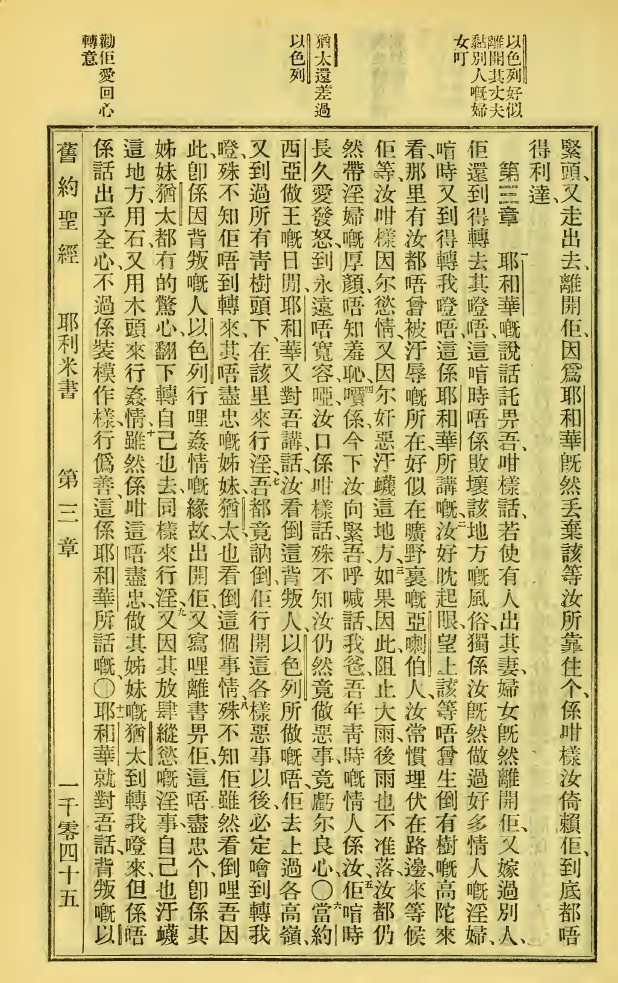 以色列好似
離開其丈夫
黏別人嘅婦
女叮
猶太還差過
以色列
勸佢愛回心
轉意
緊頭、又走出去、離開佢、因爲耶和華旣然丟棄該等汝所靠住个、係咁樣汝倚賴佢、到底都唔
得利達、
第三章 一耶和華嘅說話託畀吾、咁樣話、若使有人出其妻、婦女旣然離開佢、又嫁過別人、
佢還到得轉去其𠍁唔、這喑時唔係敗壞該地方嘅風俗、獨係汝旣然做過好多情人嘅淫婦、
喑時又到得轉我𠍁唔、這係耶和華所講嘅、二汝好眈起眼、望上該等唔曾生倒有樹嘅高陀來
看、那里有汝都唔曾被汙辱嘅所在、好似在曠野裏嘅亞喇伯人、汝常慣埋伏在路邊、來等候
佢等、汝咁樣因尔慾情、又因尔奸惡、汙衊這地方、三如果因此阻止大雨、後雨也不准落、汝都仍
然帶淫婦嘅厚顏、唔知羞恥、四嚽係今下汝向緊吾呼喊話、我爸、吾年靑時嘅情人係汝、五佢喑時
長久愛發怒、到永遠唔寬容啞、汝口係咁樣話、殊不知汝仍然竟做惡事、竟虧尔良心、〇六當約
西亞做王嘅日間、耶和華又對吾講話、汝看倒這背叛人以色列所做嘅唔、佢去上過各高嶺、
又到過所有靑樹頭下、在該里來行淫、七吾都竟訥倒佢行開這各樣惡事以後、必定噲到轉我
𠍁、殊不知佢唔到轉來、其唔盡忠嘅姊妹猶太也看倒這個事情、八殊不知佢雖然看倒哩吾因
此、卽係因背叛嘅人以色列行哩姦情嘅緣故、出開佢、又寫哩離書畀佢、這唔盡忠个、卽係其
姊妹猶太都有的驚心、翻下轉自己也去同樣來行淫、九又因其放肆縱慾嘅淫事、自己也汙衊
這地方、用石又用木頭來行姦情、十雖然係咁這唔盡忠、做其姊妹嘅猶太到轉我𠍁來、但係唔
係話出乎全心、不過係裝模作樣、行僞善、這係耶和華所話嘅、〇十一耶和華就對吾話、背叛嘅以
舊約聖經 耶利米書 第三章 一千零四十五